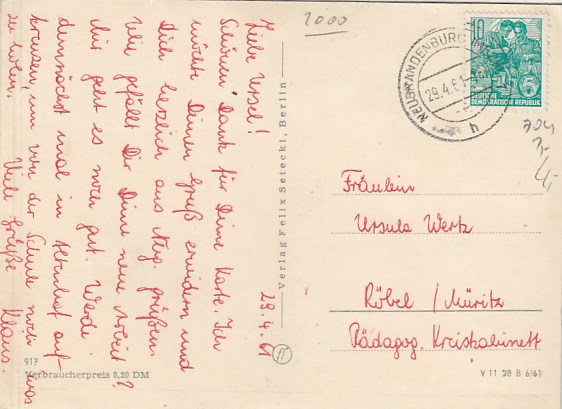 29.4.61
Liebe Ursel!
Schönen Dank für Deine Karte. Ich
möchte Deinen Gruß erwidern und
Dich herzlich aus Neg. grüßen.
Wie gefällt Dir Deine neue Arbeit?
Mir geht es noch gut. Werde
demnächst mal in Altenhof auf-
kreuzen, um von der Schule noch was
zu holen.
Viele Grüße Klaus.
917
Verbraucherpreis 0,20 DM
Verlag Felix Setecki, Berlin
2000
NEUBRANDENBURG
29.4.61
h
10
DEUTSCHE
DEMOKRATISCHE REPUBLIK
704
4,-
Fräulein
Ursula Wertz
Röbel / Müritz
Pädagog. Kreiskabinett
V 11 28 B 6/61